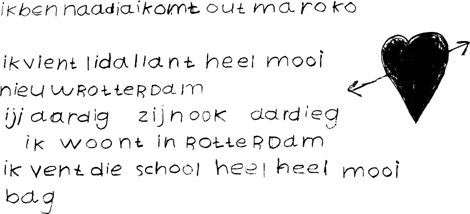 ik ben naadia ik omt out maroko
ik vient lidallant heel mooi
nieuw RotteRDam
iji aardig zijn ook aardieg
ik woont in RotteRDam
ik vent die school heel heel mooi
bag